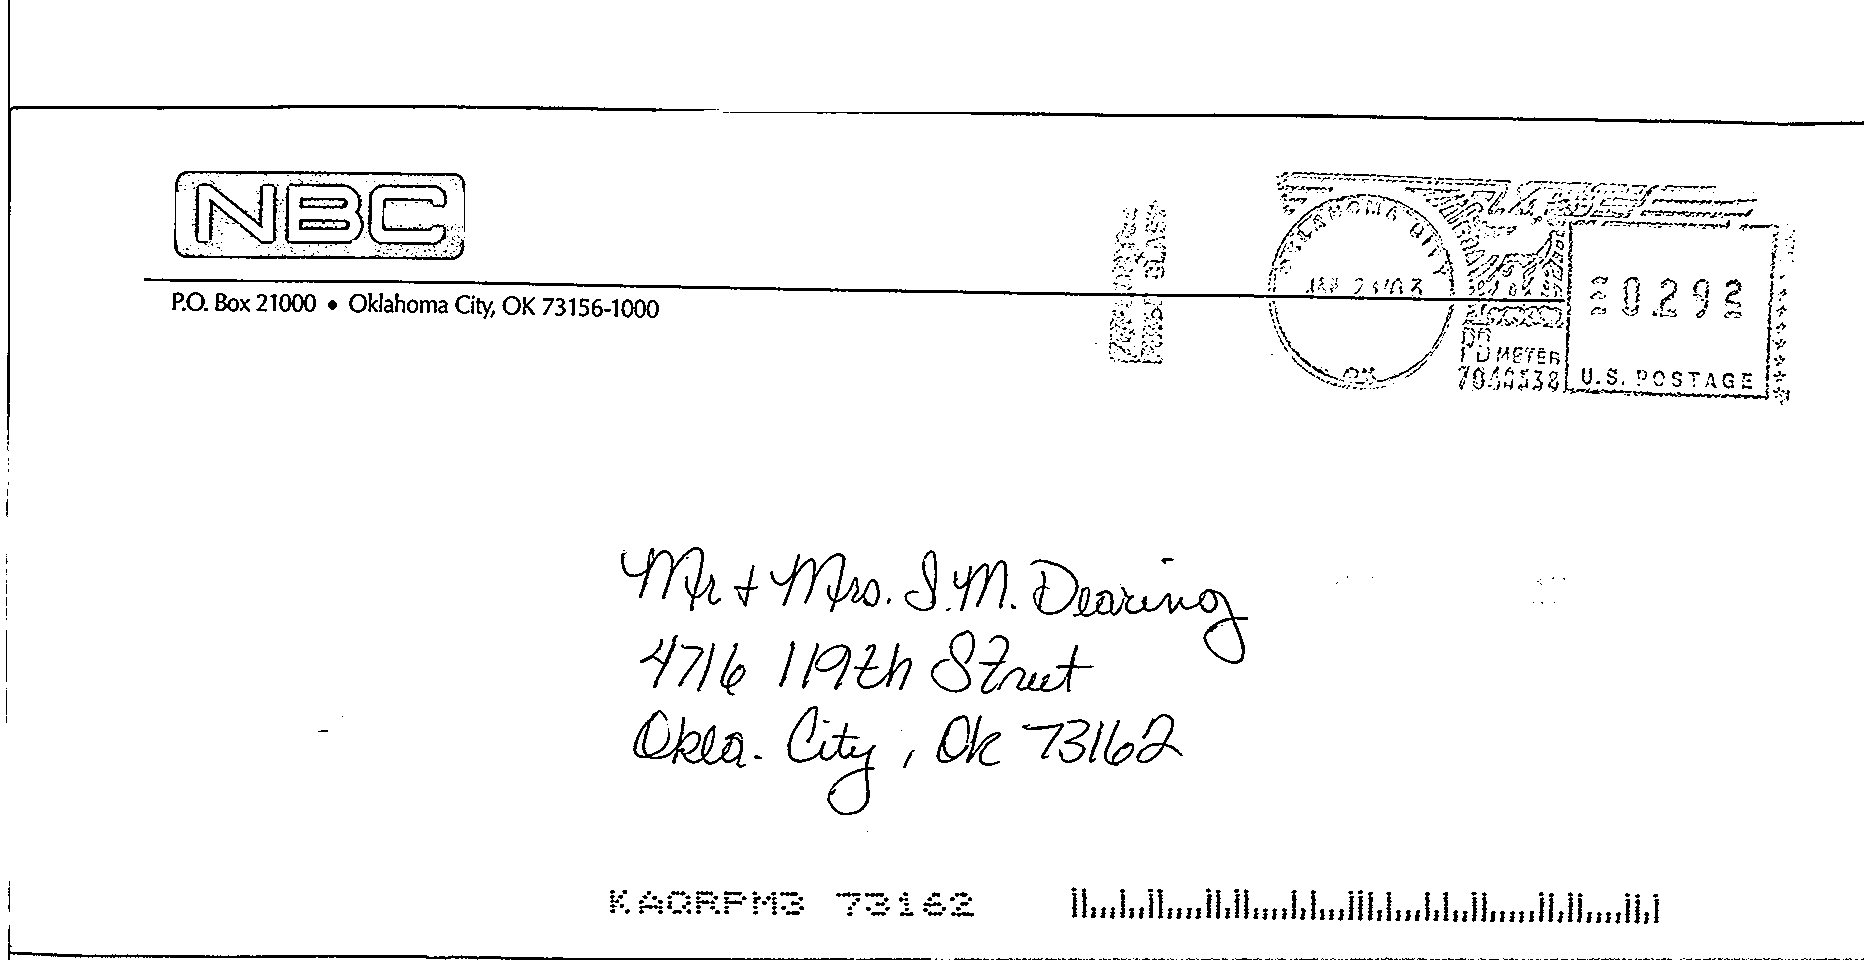 NBC
P.O. Box 21000 • Oklahoma City, OK 73156-1000
OKLAHOMA CITY
OK
PB METER
0.292
U.S. POSTAGE
Mr + Mrs. J.M. Dearing
4716 119th Street
Okla. City, Ok 73162
KAQRPM3 73162